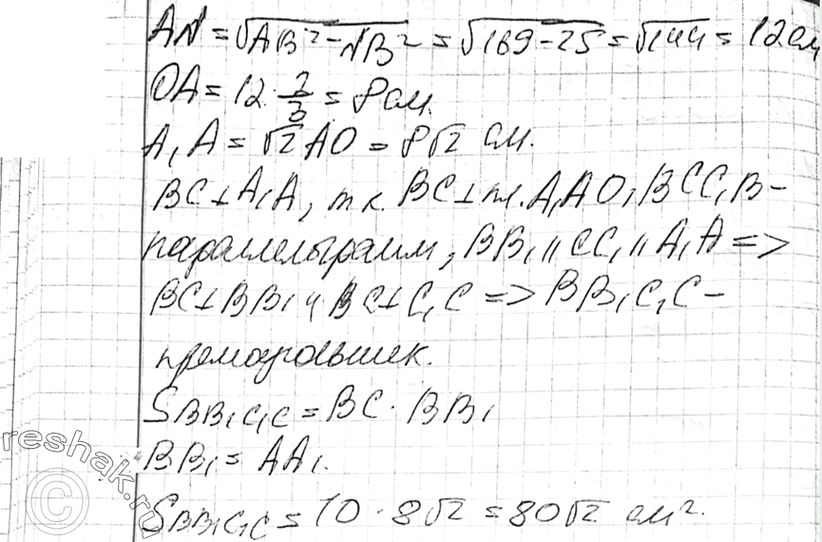 AN = √AB² - NB² = √169-25 = √144 = 12 см
OA = 12 · 2/3 = 8 см.
A₁A = √2 AO = 8√2 см.
BC ⊥ A₁A, т.к. BC ⊥ пл. A₁AO, BCC₁B -
параллелограмм, BB₁ || CC₁ || A₁A =>
BC ⊥ BB₁ и BC ⊥ C₁C => BB₁C₁C -
прямоугольник.
S BB₁C₁C = BC · BB₁
BB₁ = AA₁.
S BB₁C₁C = 10 · 8√2 = 80√2 см².
reshak.ru
©